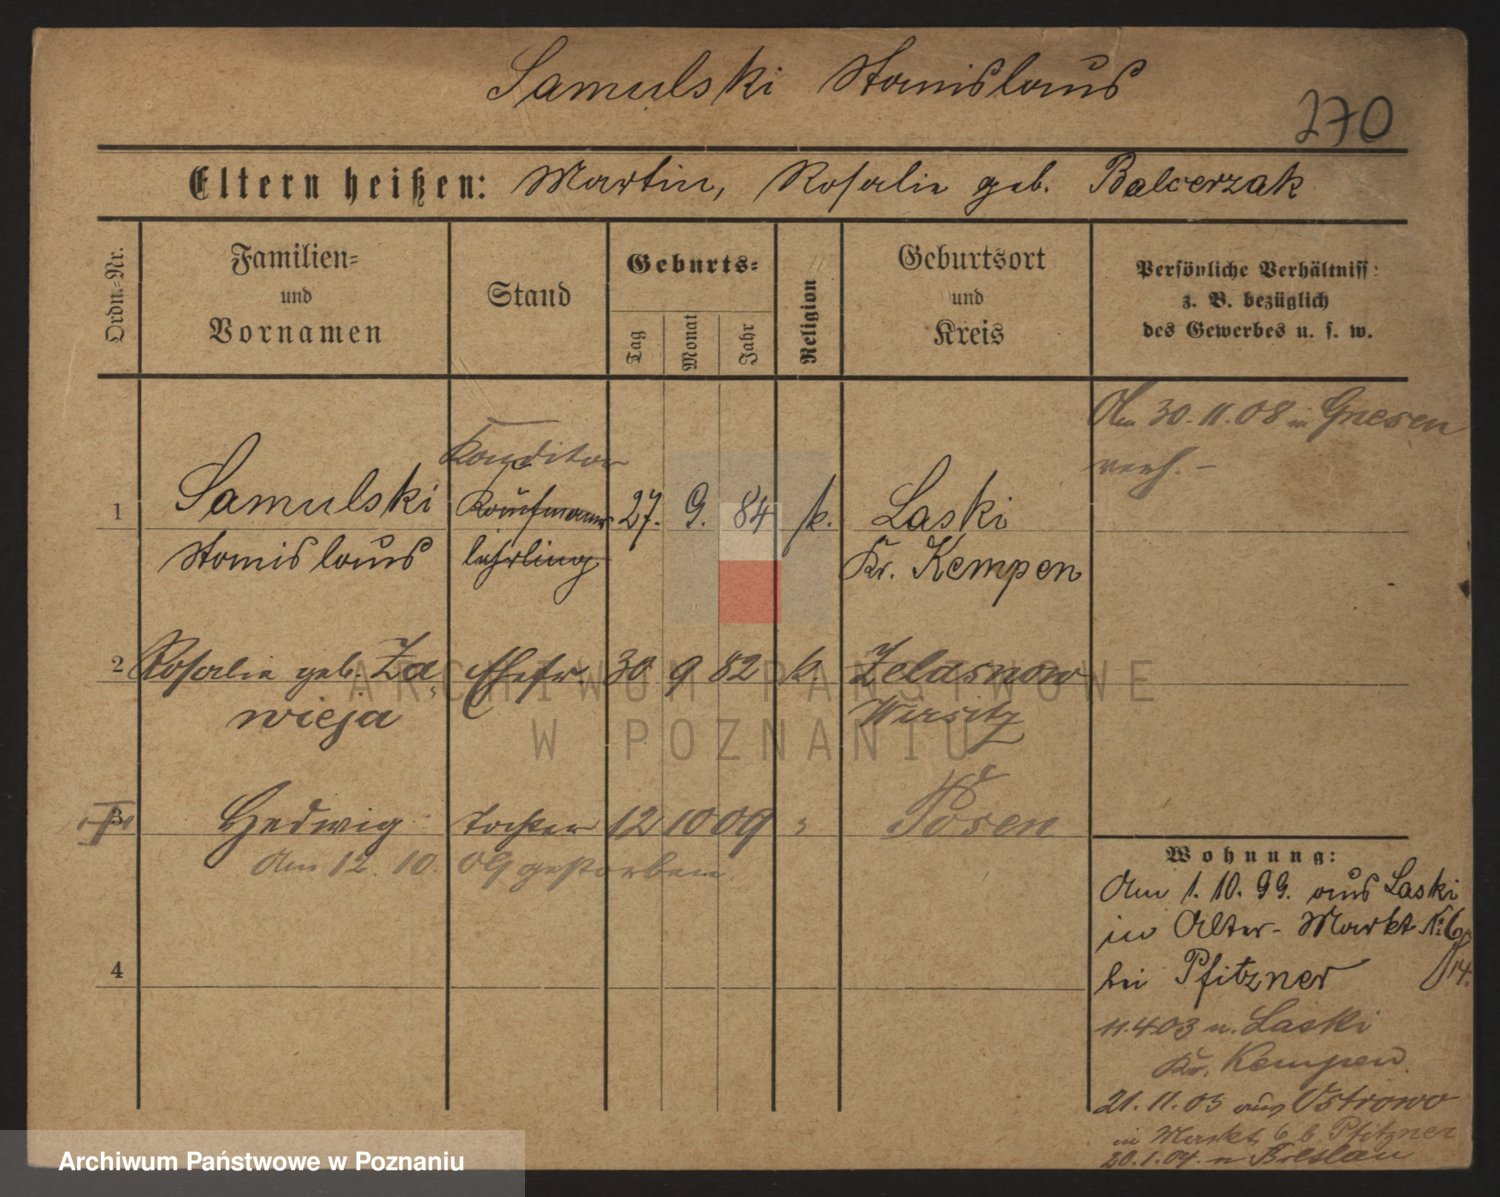 Samulski Stanislaus
270
Eltern heißen: Martin, Rosalie geb. Balcerzak
Ordn.-Nr.
Familien-
und
Vornamen
Stand
Geburts-
Tag
Monat
Jahr
Religion
Geburtsort
und
Kreis
Persönliche Verhältniss:
z. B. bezüglich
des Gewerbes u. s. w.
Am 30.11.08 in Gnesen
verh. –
Konditor
1 Samulski Kaufmanns 27. 9. 84 k. Laski
Stanislaus lehrling Kr. Kempen
2 Rosalie geb. Za Ehefr. 30 9 82 k. Zelasnow
wieja Wirsitz
3 Hedwig Tochter 12 10 09 " Posen
Am 12. 10. 09 gestorben
4
Wohnung:
Am 1. 10. 99. aus Laski
in Alter-Markt N: 6
bei Pfitzner 14.
11.4.03 n. Laski
Kr. Kempen.
21.11.03 aus Ostrowo
in Markt 6 b Pfitzner
20.1.04. n Breslau
ARCHIWUM PAŃSTWOWE
W POZNANIU
Archiwum Państwowe w Poznaniu